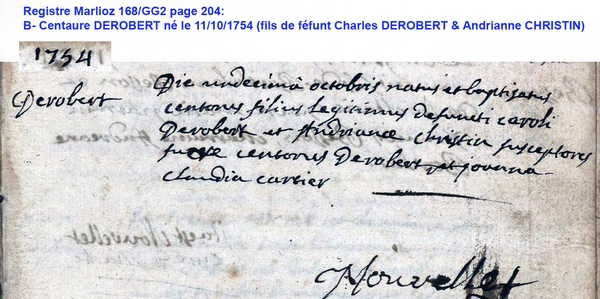 Registre Marlioz 168/GG2 page 204:
B- Centaure DEROBERT né le 11/10/1754 (fils de féfunt Charles DEROBERT & Andrianne CHRISTIN)
1754
Derobert
Die undecimâ octobris natus et baptisatus
centorus filius legitimus defuncti caroli
Derobert et Andrianæ christin susceptores
fuere centorus Derobert et joanna
claudia cartier
Nouvellet